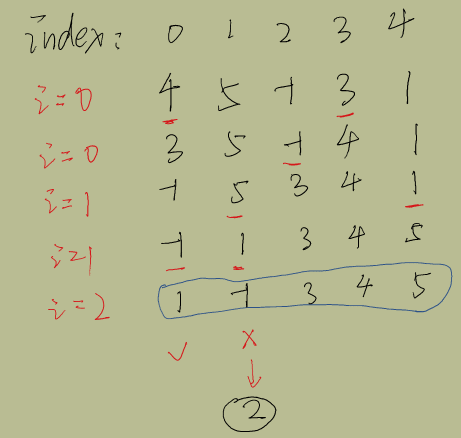 index: 0 1 2 3 4
i=0 4 5 -1 3 1
i=0 3 5 -1 4 1
i=1 -1 5 3 4 1
i=1 -1 1 3 4 5
i=2 1 -1 3 4 5
✓ ×
↓
2